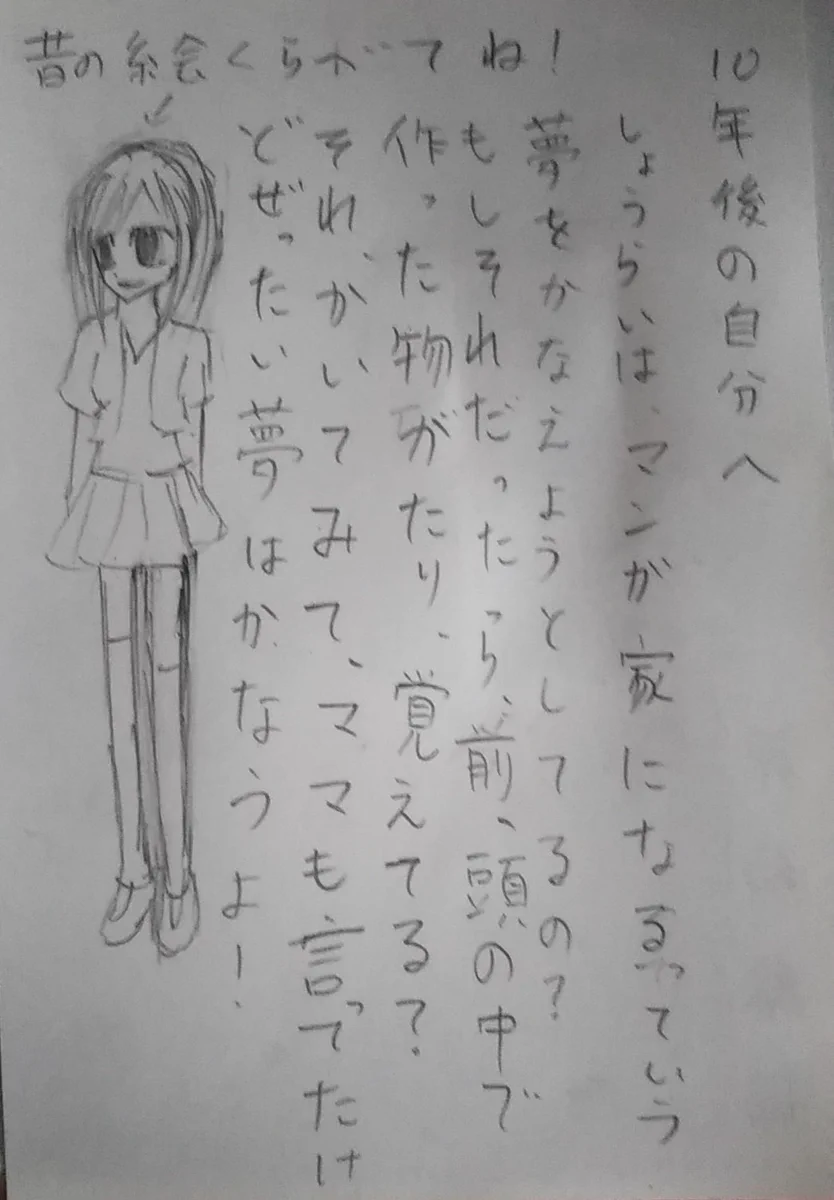 10年後の自分へ
しょうらいは、マンが家になるっていう
夢をかなえようとしてるの?
もしそれだったら、前、頭の中で
作った物がたり、覚えてる?
それ、かいてみて、ママも言ってたけ
どぜったい夢はかなうよ!
昔の絵くらがてね!